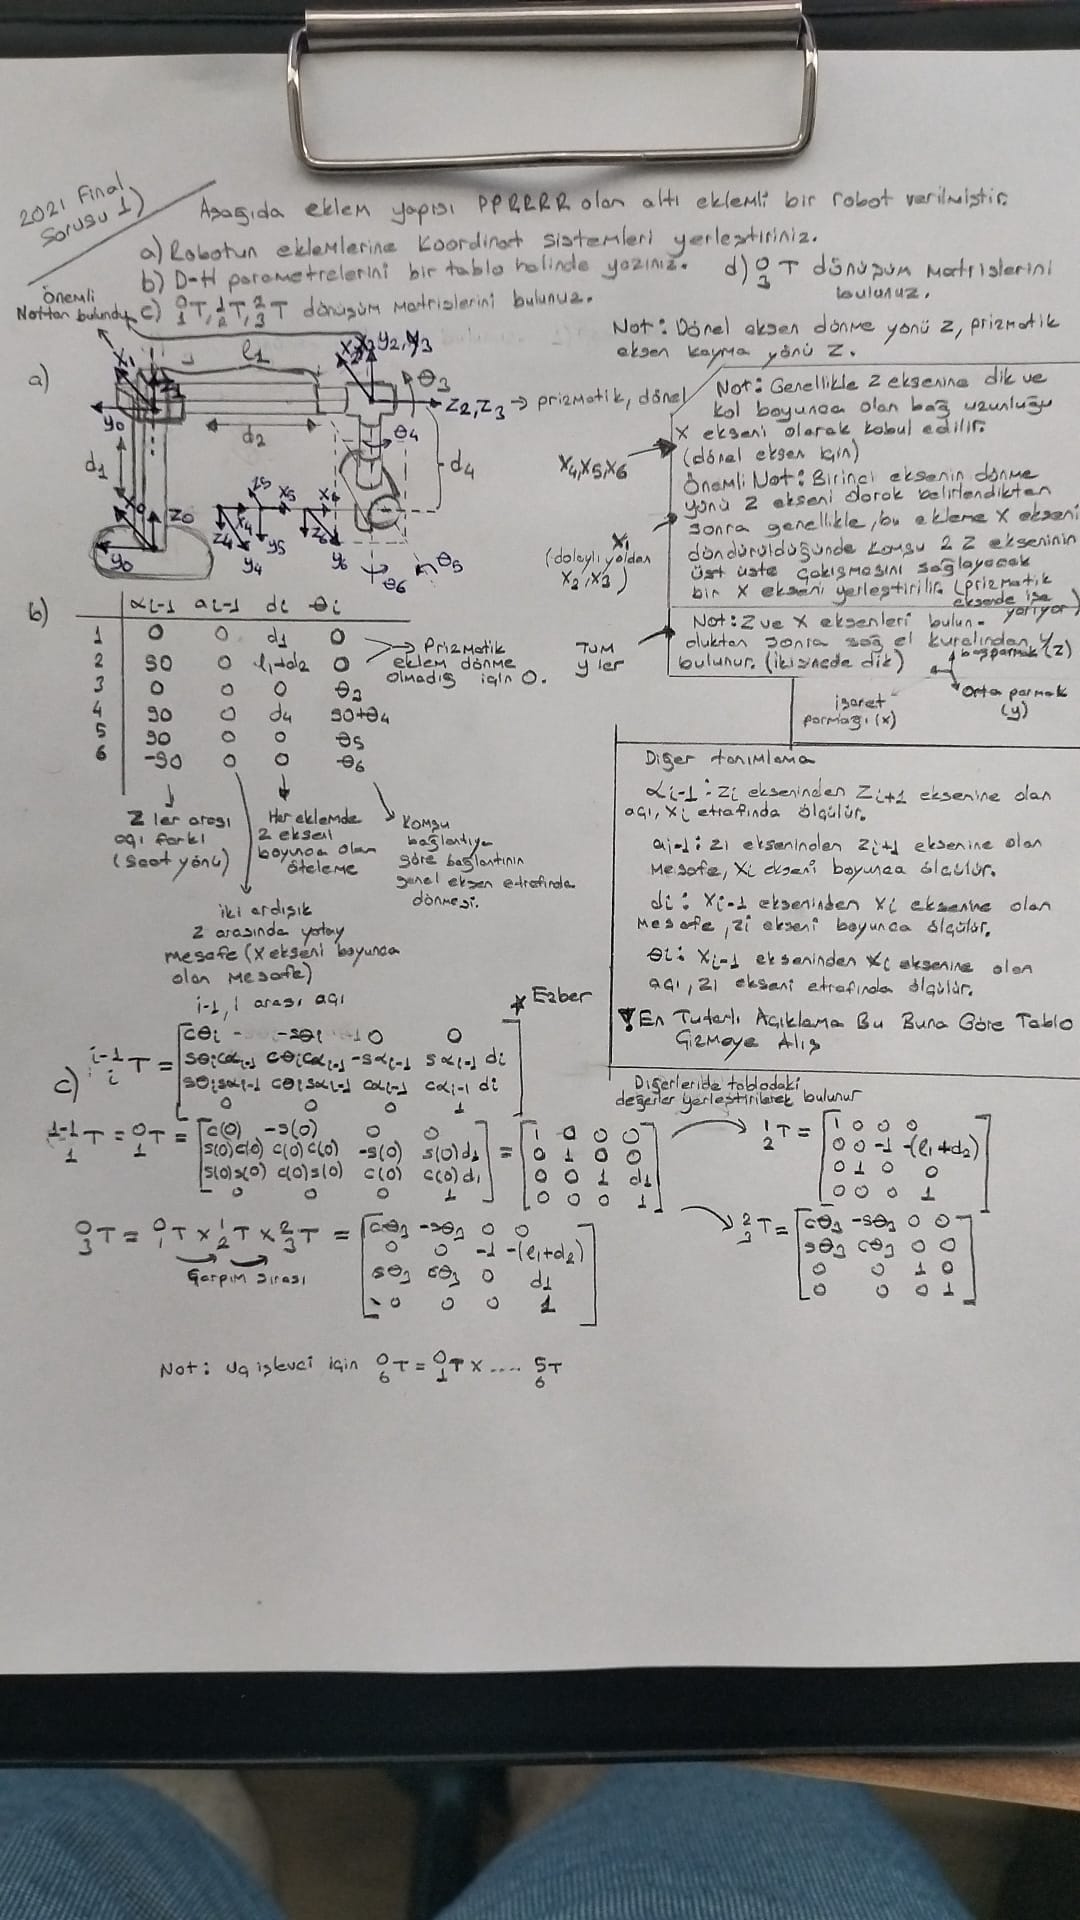 2021 Final
Sorusu 1)
Aşağıda eklem yapısı PPRRRR olan altı eklemli bir robot verilmiştir.
a) Robotun eklemlerine koordinat sistemleri yerleştiriniz.
b) D-H parametrelerini bir tablo halinde yazınız. d) 0/3 T dönüşüm matrislerini
bulunuz.
c) 0/1 T, 1/2 T, 2/3 T dönüşüm matrislerini bulunuz.
Önemli
Nottan bulundu
Not: Dönel eksen dönme yönü z, prizmatik
eksen kayma yönü z.
a)
x1 l1 y2, y3
θ3
z2, z3 → prizmatik, dönel
y0 d2 θ4
d1 d4
z0
z5 x5
z4 y5 z6
y4 y6
y0 θ6 θ5
x4, x5, x6
x1
(dolaylı yoldan
x2, x3)
Tüm
y ler
Not: Genellikle z eksenine dik ve
kol boyunca olan bağ uzunluğu
x ekseni olarak kabul edilir.
(dönel eksen için)
Önemli Not: Birinci eksenin dönme
yönü z ekseni olarak belirlendikten
sonra genellikle, bu ekleme x ekseni
döndürüldüğünde komşu 2 z ekseninin
üst üste çakışmasını sağlayacak
bir x ekseni yerleştirilir. (prizmatik
eksende ise
yarıyor)
Not: z ve x eksenleri bulun-
duktan sonra sağ el kuralından y
bulunur. (ikisinede dik)
başparmak (z)
işaret
parmağı (x)
Orta parmak
(y)
b)
αi-1 ai-1 di θi
1 0 0 d1 0
2 90 0 l1+d2 0
3 0 0 0 θ3
4 90 0 d4 90+θ4
5 90 0 0 θ5
6 -90 0 0 θ6
→ Prizmatik
eklem dönme
olmadığı için 0.
z ler arası
açı farkı
(saat yönü)
Her eklemde
z ekseni
boyunca olan
öteleme
komşu
bağlantıya
göre bağlantının
genel eksen etrafında
dönmesi.
iki ardışık
z arasında yatay
mesafe (x ekseni boyunca
olan mesafe)
i-1, i arası açı
Diğer tanımlama
αi-1: zi ekseninden zi+1 eksenine olan
açı, xi etrafında ölçülür.
ai-1: zi ekseninden zi+1 eksenine olan
mesafe, xi ekseni boyunca ölçülür.
di: xi-1 ekseninden xi eksenine olan
mesafe, zi ekseni boyunca ölçülür.
θi: xi-1 ekseninden xi eksenine olan
açı, zi ekseni etrafında ölçülür.
! En Tutarlı Açıklama Bu Buna Göre Tablo
Çizmeye Alış
★ Ezber
c) i-1/i T = [cθi -sθi 0 0
sθicαi-1 cθicαi-1 -sαi-1 sαi-1 di
sθisαi-1 cθisαi-1 cαi-1 cαi-1 di
0 0 0 1]
Diğerleride tablodaki
değerler yerleştirilerek bulunur
1-1/1 T = 0/1 T = [c(0) -s(0) 0 0
s(0)c(0) c(0)c(0) -s(0) s(0)d1
s(0)s(0) c(0)s(0) c(0) c(0)d1
0 0 0 1]
= [1 0 0 0
0 1 0 0
0 0 1 d1
0 0 0 1]
→ 1/2 T = [1 0 0 0
0 0 -1 -(l1+d2)
0 1 0 0
0 0 0 1]
→ 2/3 T = [cθ3 -sθ3 0 0
sθ3 cθ3 0 0
0 0 1 0
0 0 0 1]
0/3 T = 0/1 T x 1/2 T x 2/3 T = [cθ3 -sθ3 0 0
0 0 -1 -(l1+d2)
sθ3 cθ3 0 d1
0 0 0 1]
Çarpım sırası
Not: Uç işlevci için 0/6 T = 0/1 T x .... 5/6 T